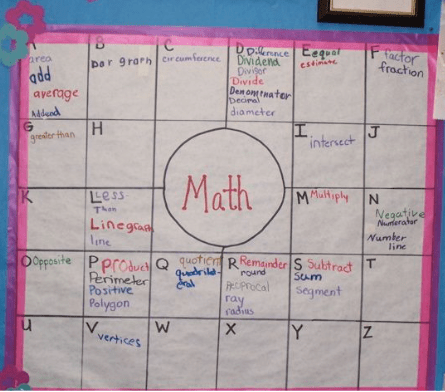 A
area
add
average
Addend
B
bar graph
C
circumference
D Difference
Dividend
Divisor
Divide
Denominator
Decimal
diameter
E equal
estimate
F factor
fraction
G
greater than
H
I
intersect
J
K
Less
Than
Line graph
line
Math
M Multiply
N
Negative
Numerator
Number
line
O Opposite
P Product
Perimeter
Positive
Polygon
Q quotient
quadrilat-
eral
R Remainder
round
Reciprocal
ray
radius
S Subtract
Sum
Segment
T
U
V
vertices
W
X
Y
Z